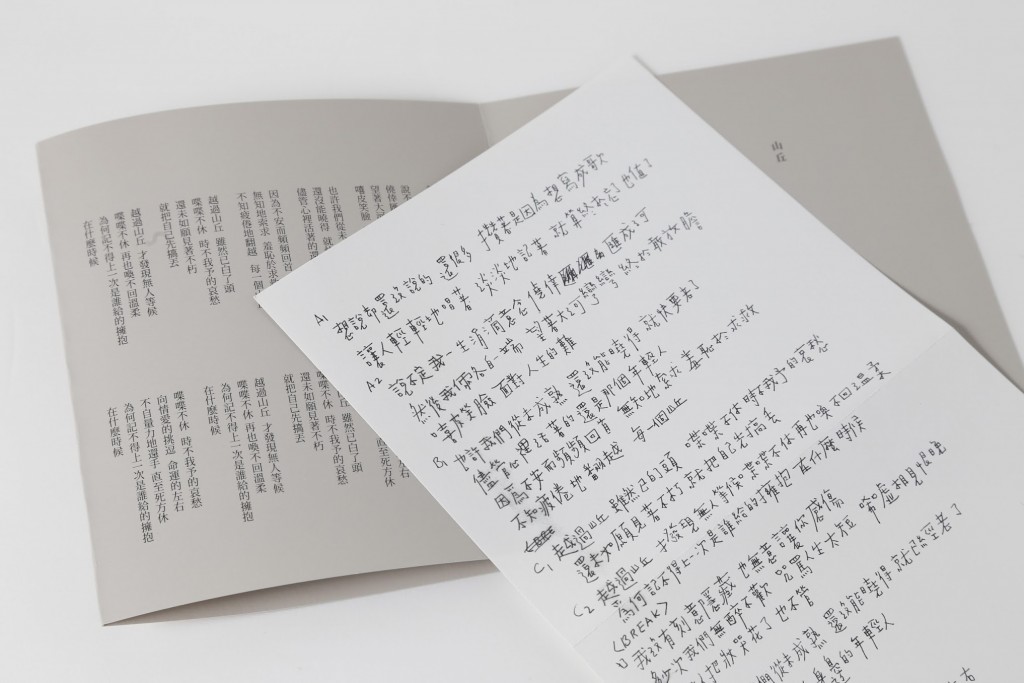 山丘
說不
僥倖
望著大
嘻皮笑臉
也許我們從未
還沒能曉得 就
儘管心裡活著的還
因為不安而頻頻回首
無知地索求 羞恥於求
不知疲倦地翻越 每一個
越過山丘 雖然已白了頭
喋喋不休 時不我予的哀愁
還未如願見著不朽
就把自己先搞丟
越過山丘 才發現無人等候
喋喋不休 再也喚不回溫柔
為何記不得上一次是誰給的擁抱
在什麼時候
左右
至死方休
丘 雖然已白了頭
時不我予的哀愁
還未如願見著不朽
就把自己先搞丟
越過山丘 才發現無人等候
喋喋不休 再也喚不回溫柔
為何記不得上一次是誰給的擁抱
在什麼時候
喋喋不休 時不我予的哀愁
向情愛的挑逗 命運的左右
不自量力地還手 直至死方休
為何記不得上一次是誰給的擁抱
在什麼時候
A1
想說卻還沒說的 還很多 攢著是因為想寫成歌
讓人輕輕地唱著 淡淡地記著 就算終於忘了也值了
A2
說不定我一生涓滴意念 僥倖匯成河
然後我倆各自一端 望著大河彎彎 終於敢放膽
嘻皮笑臉 面對 人生的難
B1
也許我們從未成熟 還沒能曉得 就快要老了
儘管心裡活著的還是那個年輕人
因為不安而頻頻回首 無知地索求 羞恥於求救
不知疲倦地翻越 每一個山丘
C1 越過山丘 雖然已白了頭 喋喋不休 時不我予的哀愁
還未如願見著不朽 就把自己先搞丟
C2 越過山丘 才發現無人等候 喋喋不休 再也喚不回溫柔
為何記不得上一次是誰給的擁抱 在什麼時候
(BREAK)
我沒有刻意隱藏 也無意讓你感傷
多少次我們無醉不歡 咒罵人生太短 唏噓相見恨晚
人把妝哭花了 也不管
們從未成熟 還沒能曉得 就已經老了
的年輕人